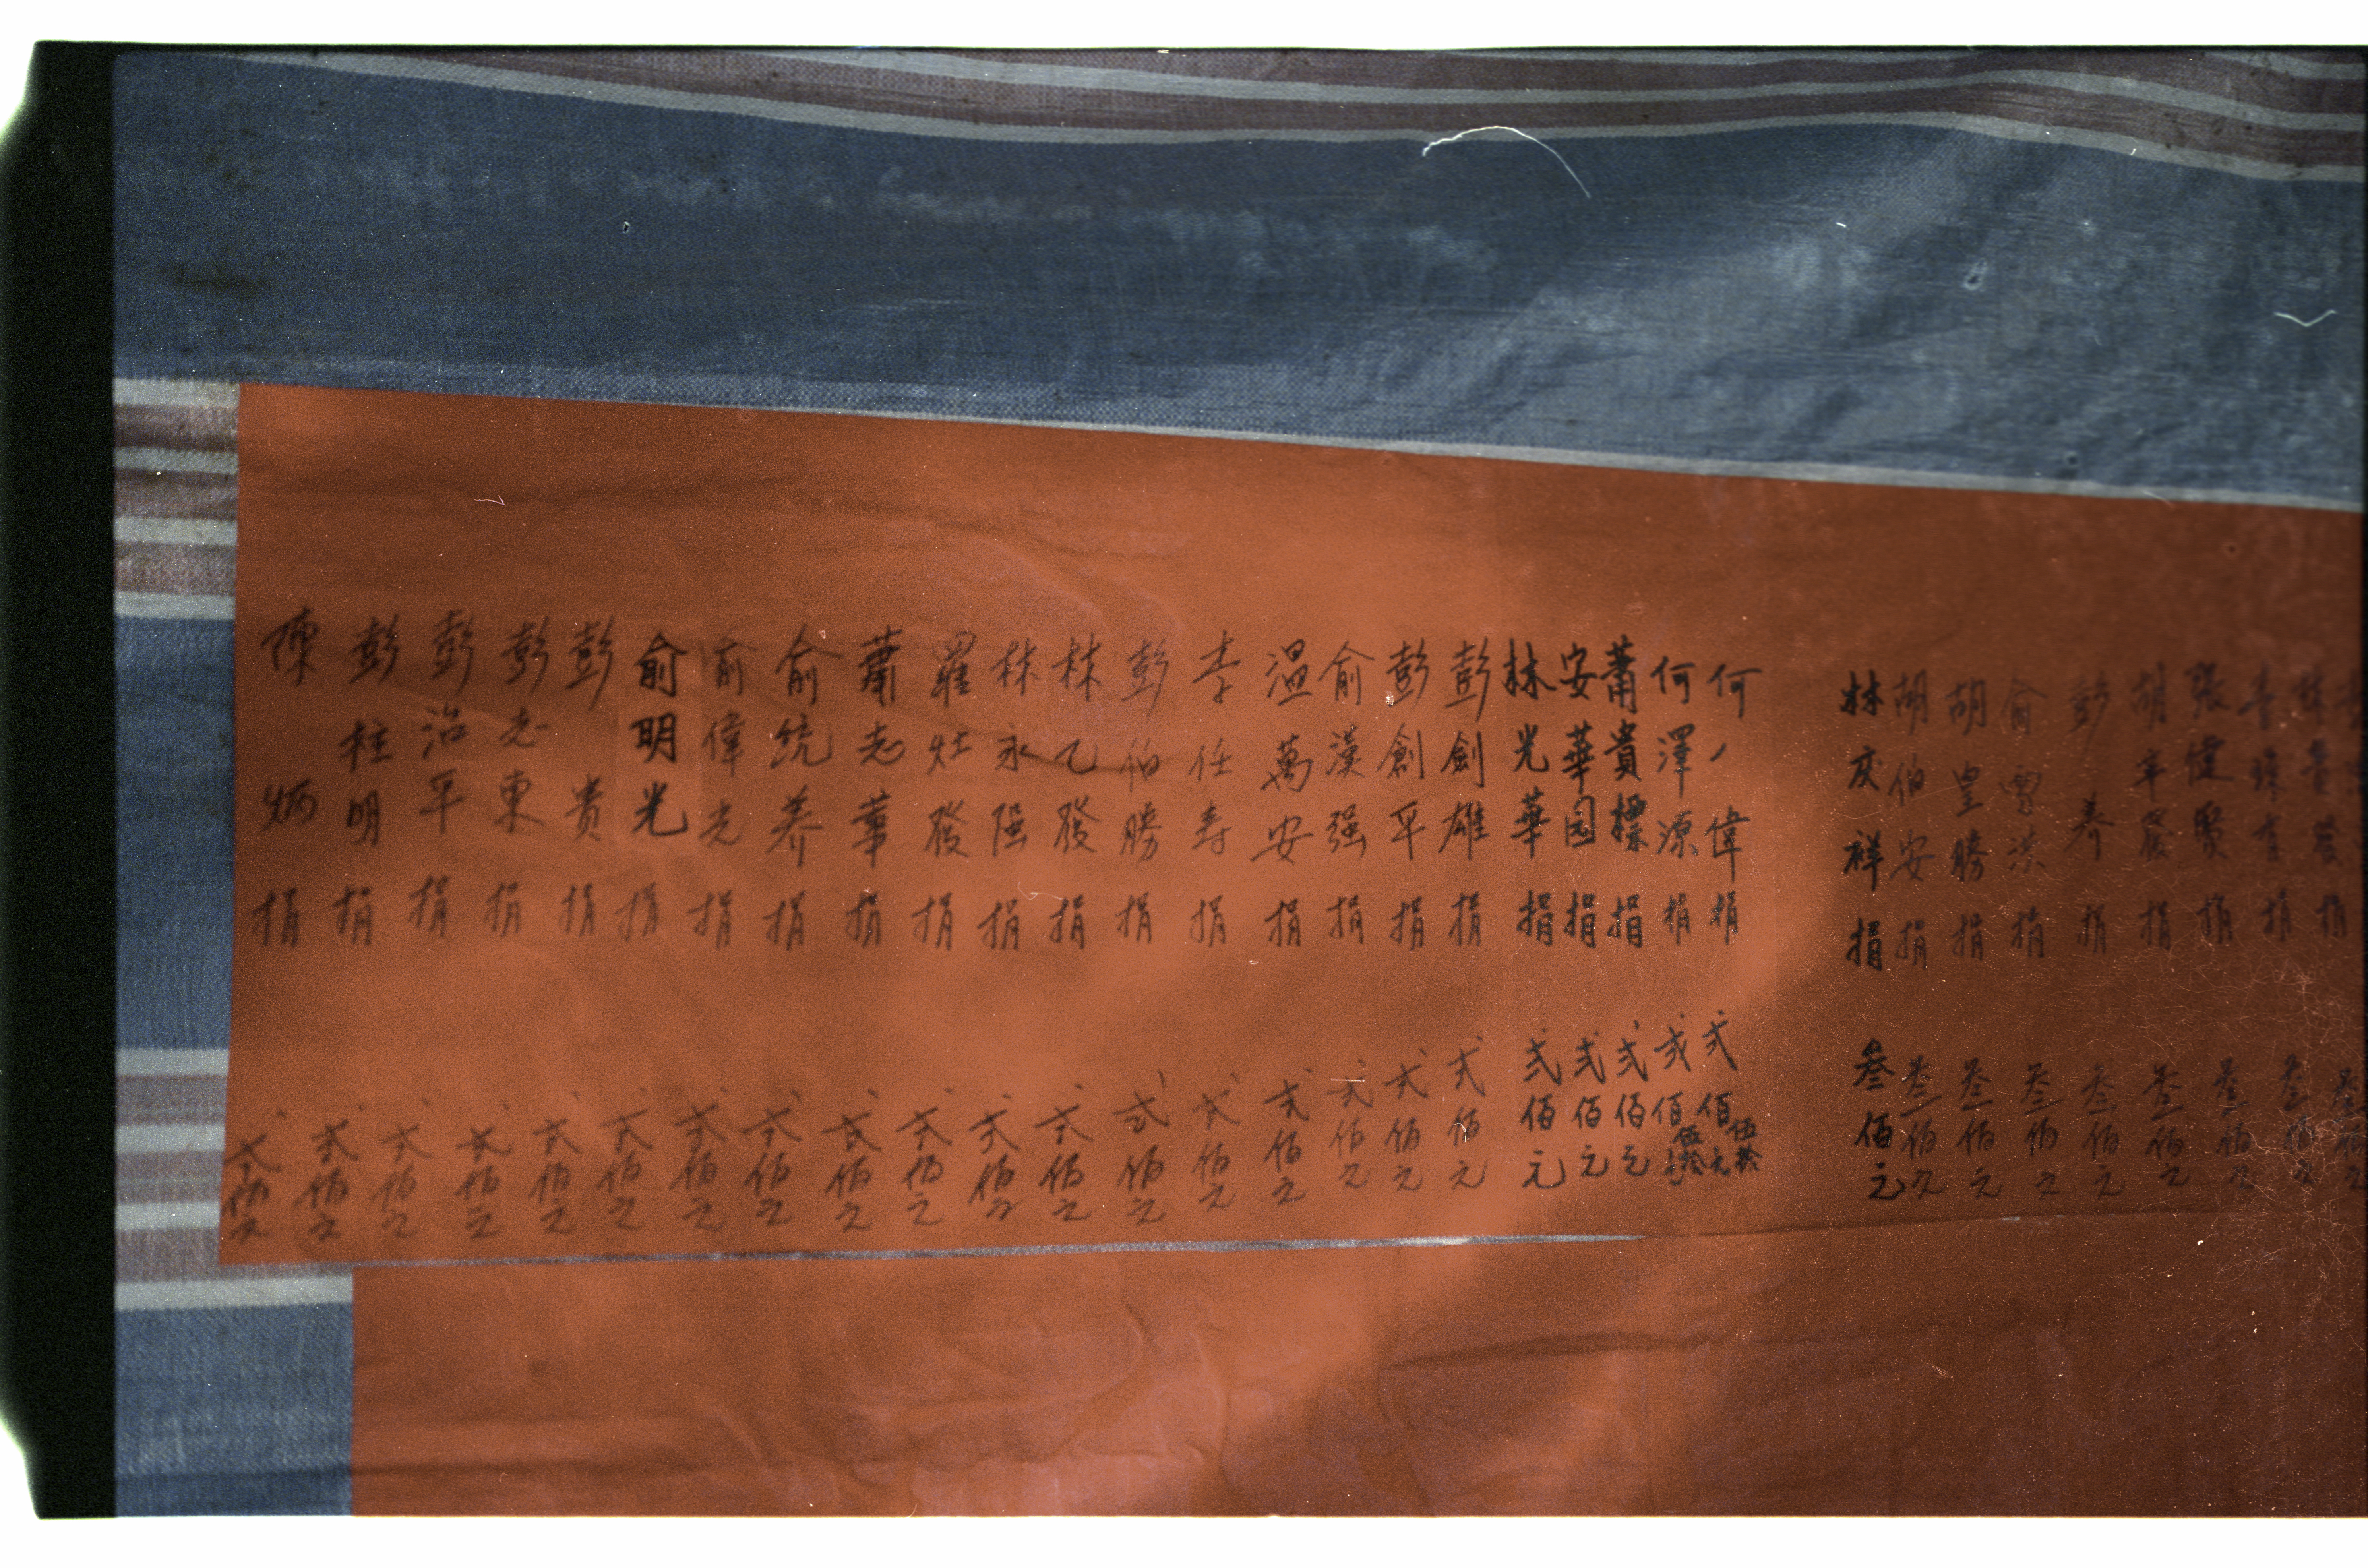 張健賢捐 叁佰元
胡辛捐 叁佰元
彭養捐 叁佰元
俞雪洪捐 叁佰元
胡皇勝捐 叁佰元
胡伯安捐 叁佰元
林庆祥捐 叁佰元
何偉捐 弍佰伍拾元
何澤源捐 弍佰伍拾元
蕭貴標捐 弍佰元
安華园捐 弍佰元
林光華捐 弍佰元
彭劍雄捐 弍佰元
彭創平捐 弍佰元
俞漢强捐 弍佰元
温萬安捐 弍佰元
李任寿捐 弍佰元
彭伯勝捐 弍佰元
林乙發捐 弍佰元
林永强捐 弍佰元
羅灶發捐 弍佰元
蕭志華捐 弍佰元
俞統养捐 弍佰元
俞偉光捐 弍佰元
俞明光捐 弍佰元
彭貴捐 弍佰元
彭志東捐 弍佰元
彭治平捐 弍佰元
彭桂明捐 弍佰元
陳炳捐 弍佰元